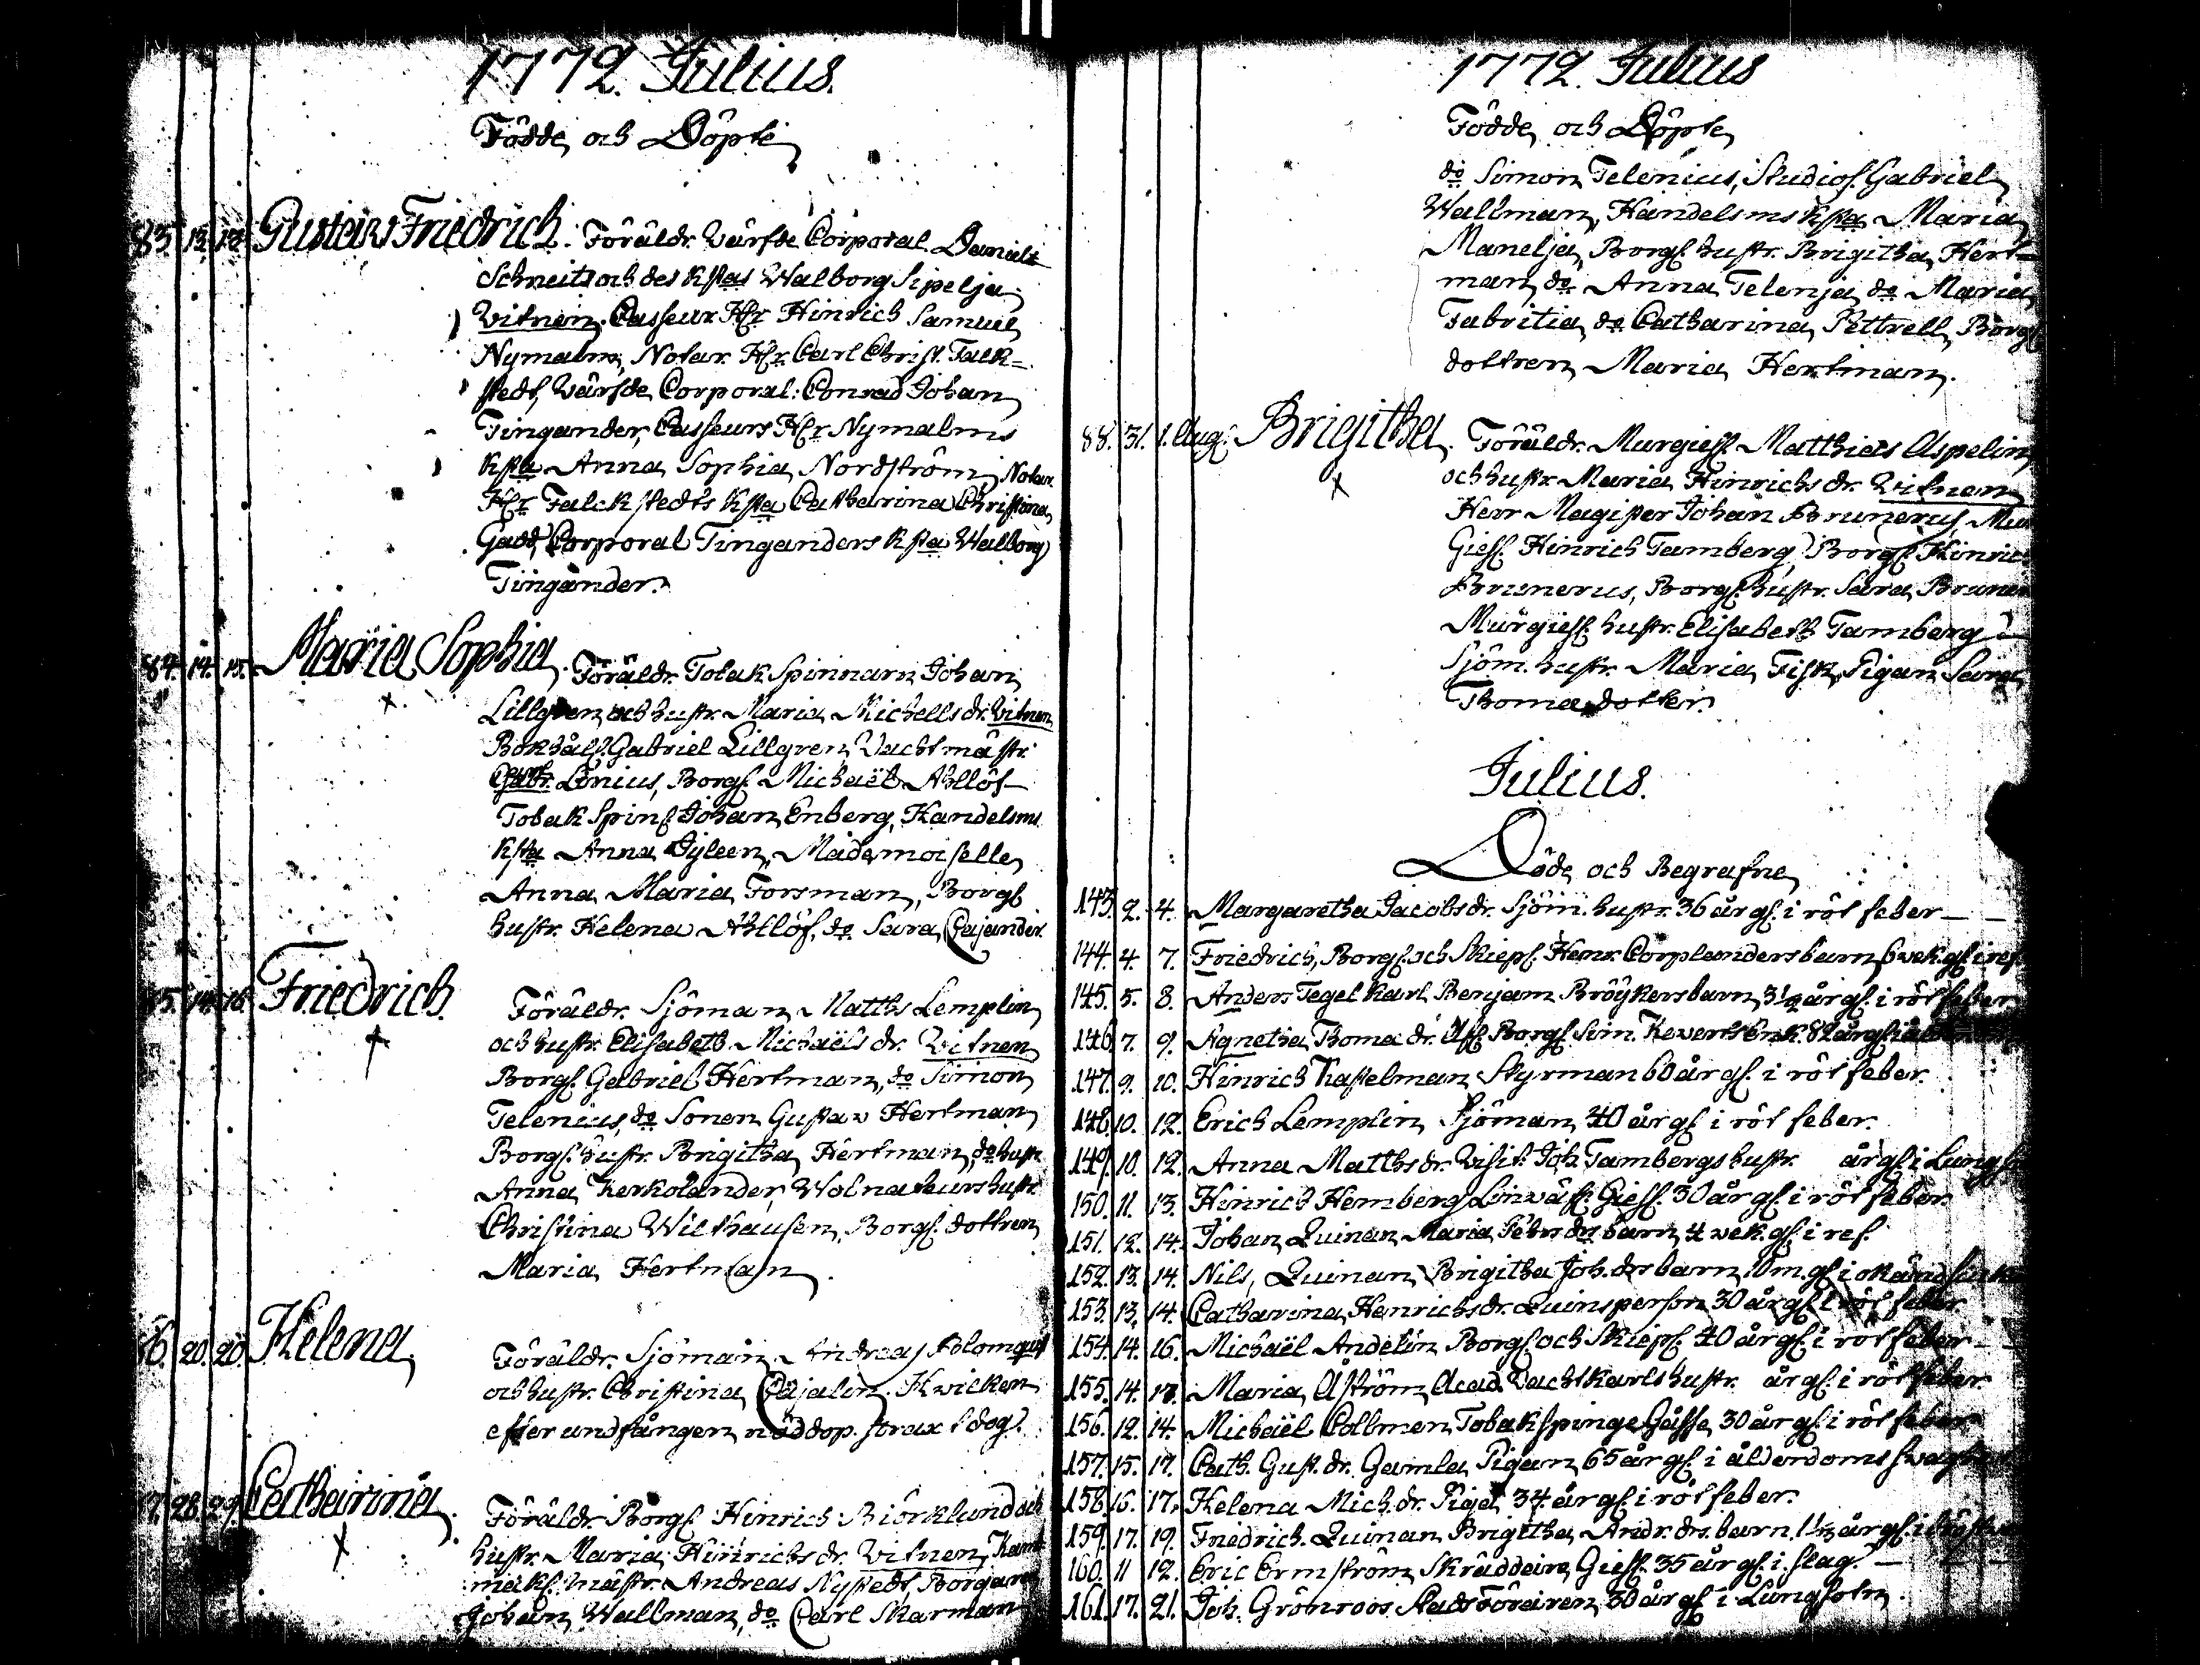 1772. Julius.
Födde och Döpte
83. 12. 13. Gustaw Friedrich. Föräldr. Wärfde Corporal Daniel
Schneitz och des Ksta Walborg Sipelja
Vitnen. Casseur Hr Hinrich Samuel
Nymalm, Notar. Hr Carl Christ. Falk-
stedt, Wärfde Corporal: Conrad Johan
Tingander, Casseurs Hr Nymalms
Ksta Anna Sophia Nordström, Notar.
Hr Falckstedts Ksta Catharina Christina
Gadd, Corporal Tinganders Ksta Walborg
Tingander.
84. 14. 15. Maria Sophia. Föräldr. Tobak Spinnarn Johan
Lillgren och hustr. Maria Michells dr. Vitnen
Bokhåll. Gabriel Lillgren, Vachtmästr.
Lönius, Borgs. Michaël Ahllöf
Tobak Spins Johan Enberg, Handelsms
Ksta Anna Gyleen, Mademoiselle
Anna Maria Forsman, Borgs
hustr. Helena Ahllöf, do Sara Cajander.
85. 14. 16. Friedrich. Föräldr. Sjöman Matths Lemplin
och hustr. Elisabeth Michaëls dr. Vitnen
Borgs. Gabriel Hertman, do Simon
Telenius, do Sonen Gustaw Hertman
Borgs. hustr. Brigitha Hertman, do hustr.
Anna Kerkolander, Wolnateurs hustr.
Christina Wilthausen, Borgs. dottren
Maria Hertman.
86. 20. 20. Helena. Föräldr. Sjöman Andreas Blomquist
och hustr. Christina Cajalin. Hwilken
efter undfången nöddop. strax dog.
87. 28. 29. Catharina. Föräldr. Borgs Hinrich Biörklund och
hustr. Maria Hinrichs dr. Vitnen, Kam-
maks. mästr. Andreas Nystedt, Borgaren
Johan Wallman, do Carl Skarman
1772. Julius
Födde och Döpte
do Simon Telenius, Studios. Gabriel
Wallman, Handelsms Ksta Maria
Manelja, Borgs. hustr. Brigitha Hert-
man, do Anna Telenja, do Maria
Fabritia, do Catharina Pettrell, Borgs
dottren Maria Hertman.
88. 31. 1. Aug: Brigitha. Föräldr. Murgiesl. Matthias Aspelin
och hustr. Maria Hinrichs dr. Vitnen
Herr Magister Johan Brunerus, Mur
Giesl. Hinrich Tamberg, Borgs. Hinric
Brunerus, Borgs. hustr. Sara Bruner
Murgiesl. hustr. Elisabeth Tamberg
Sjöm. hustr. Maria Fisk, Pigan Sara
Thomadotter.
Julius.
Döde och Begrafne
143. 2. 4. Margaretha Jacobs dr. Sjöm. hustr. 36 år gl. i röt feber
144. 4. 7. Friedrich, Borgs. och Skieps. Henr. Corplanders barn 6 wek. gl. i ref.
145. 5. 8. Anders Tegelkarl Benjam Bröykers barn, 3 1/2 år gl. i röt feber
146. 7. 9. Agnetha Thoma dr. Afl. Borgs. Sim. Keverts Enk. 82 år gl. i
147. 9. 10. Hinrich Kastelman Styrman 60 år gl. i röt feber.
148. 10. 12. Erich Lemplin Sjöman 40 år gl. i röt feber.
149. 10. 12. Anna Matths dr. Visit. Joh. Tambergs hustr. år gl. i Lungs
150. 11. 13. Hinrich Hemberg Linwäf. Giesl. 30 år gl. i röt feber.
151. 12. 14. Johan, Quinan Maria Peters drs barn 4 wek. gl. i ref.
152. 13. 14. Nils, Quinan Brigitha Joh. drs barn, 10 m. gl. i okänd siuk
153. 13. 14. Catharina Henrichs dr. Quinsperson 30 år gl. i röt feber
154. 14. 16. Michaël Andelin Borgs. och Skieps. 40 år gl. i röt feber
155. 14. 17. Maria Åström Acad. Vachtkarls hustr. år gl. i röt feber.
156. 12. 14. Michaël Collmen Tobakspinge Gässe, 30 år gl. i röt feber.
157. 15. 17. Cath. Gust. dr. Gamla Pigan, 65 år gl. i ålderdoms swaghet
158. 16. 17. Helena Mich. dr. Piga 34 år gl. i röt feber.
159. 17. 19. Friedrich. Quinan Brigitha Andr. drs. barn, 1 1/2 år gl. i
160. 11 12. Eric Ermström Skräddare Giesl. 35 år gl. i. slag.
161. 17. 21. Joh. Grönroos Stadsförairen 30 år gl. i Lungsotn.